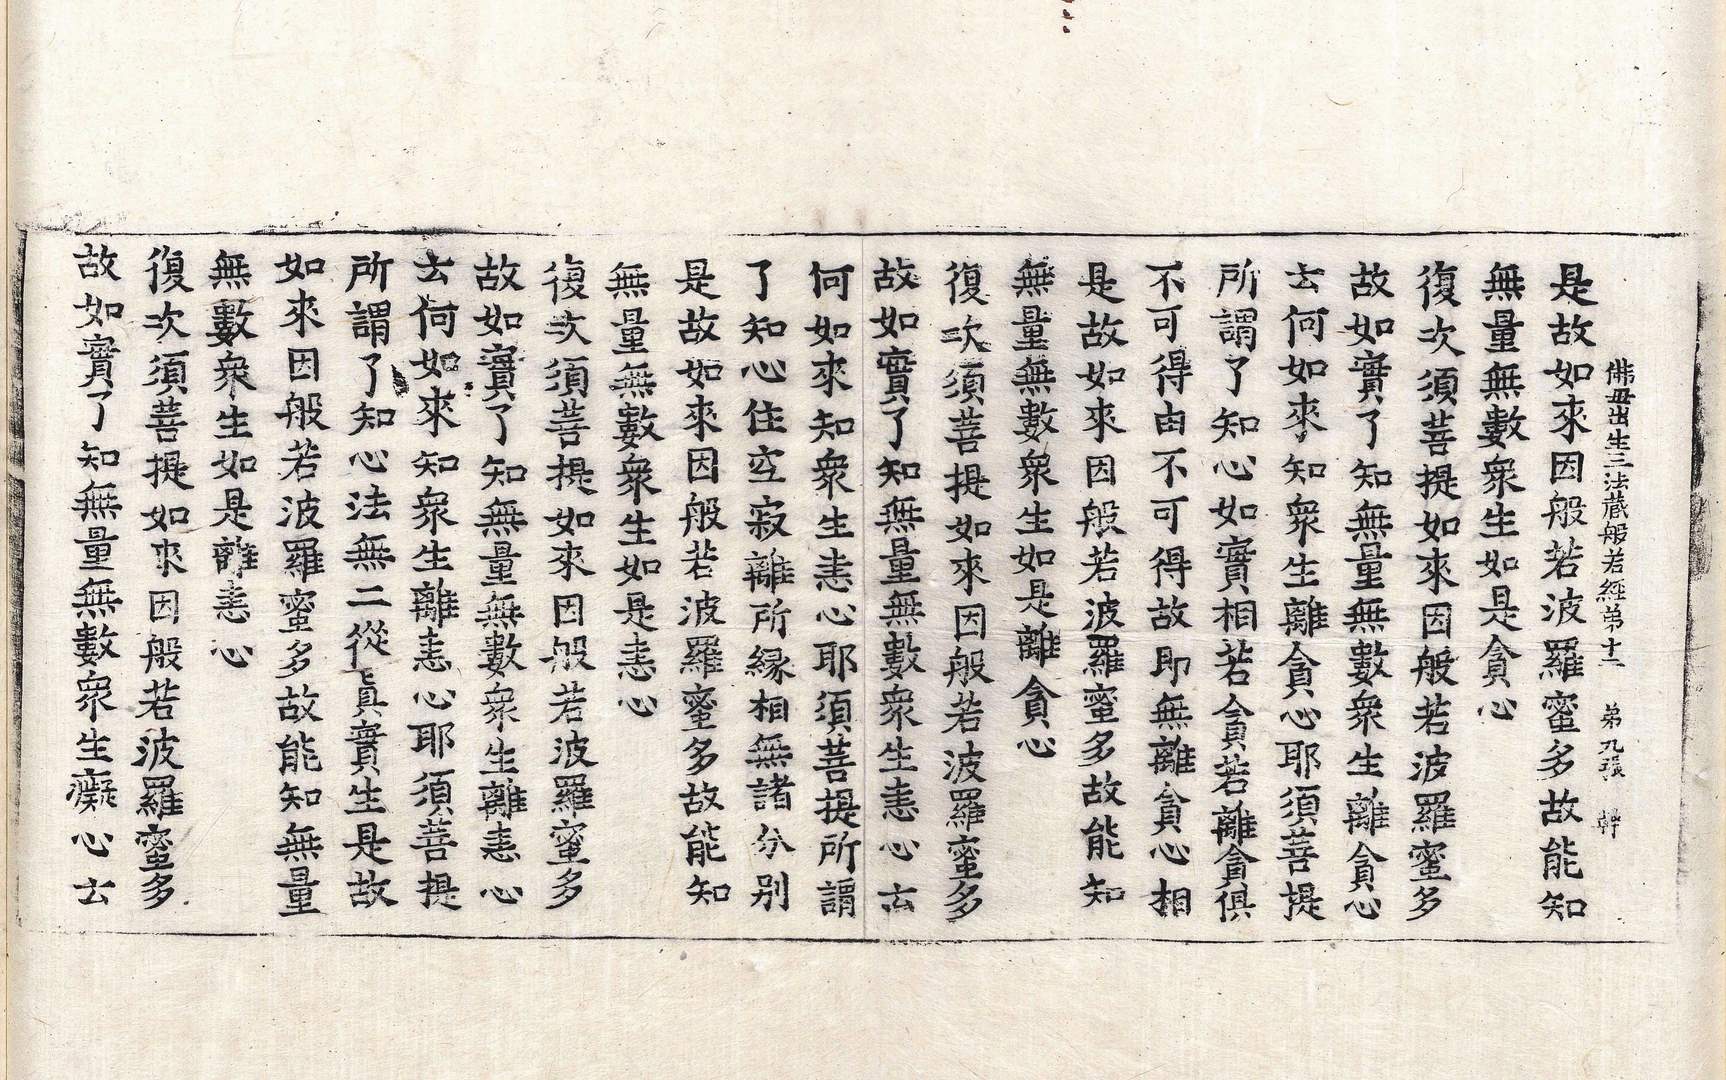 佛毋出生三法藏般若經弟十二　弟九張　幹
是故如來因般若波羅蜜多故能知
無量無數衆生如是貪心
復次須菩提如來因般若波羅蜜多
故如實了知無量無數衆生離貪心
云何如來知衆生離貪心耶須菩提
所謂了知心如實相若貪若離貪俱
不可得由不可得故即無離貪心相
是故如來因般若波羅蜜多故能知
無量無數衆生如是離貪心
復次須菩提如來因般若波羅蜜多
故如實了知無量無數衆生恚心云
何如來知衆生恚心耶須菩提所謂
了知心住空寂離所緣相無諸分別
是故如來因般若波羅蜜多故能知
無量無數衆生如是恚心
復次須菩提如來因般若波羅蜜多
故如實了知無量無數衆生離恚心
云何如來知衆生離恚心耶須菩提
所謂了知心法無二從眞實生是故
如來因般若波羅蜜多故能知無量
無數衆生如是離恚心
復次須菩提如來因般若波羅蜜多
故如實了知無量無數衆生癡心云